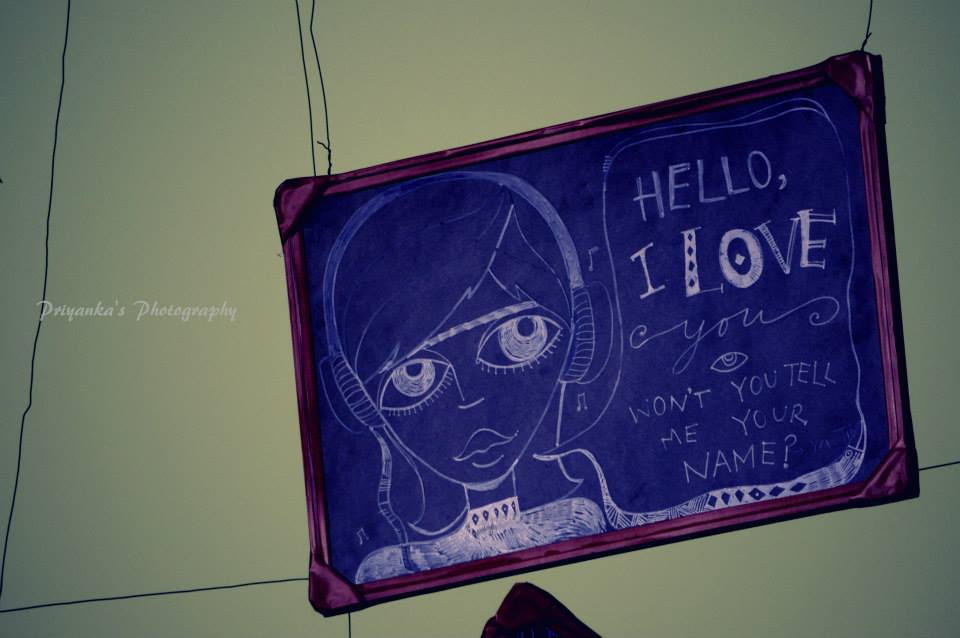 Priyanka's Photography
HELLO,
I LOVE
you
WON'T YOU TELL
ME YOUR
NAME?